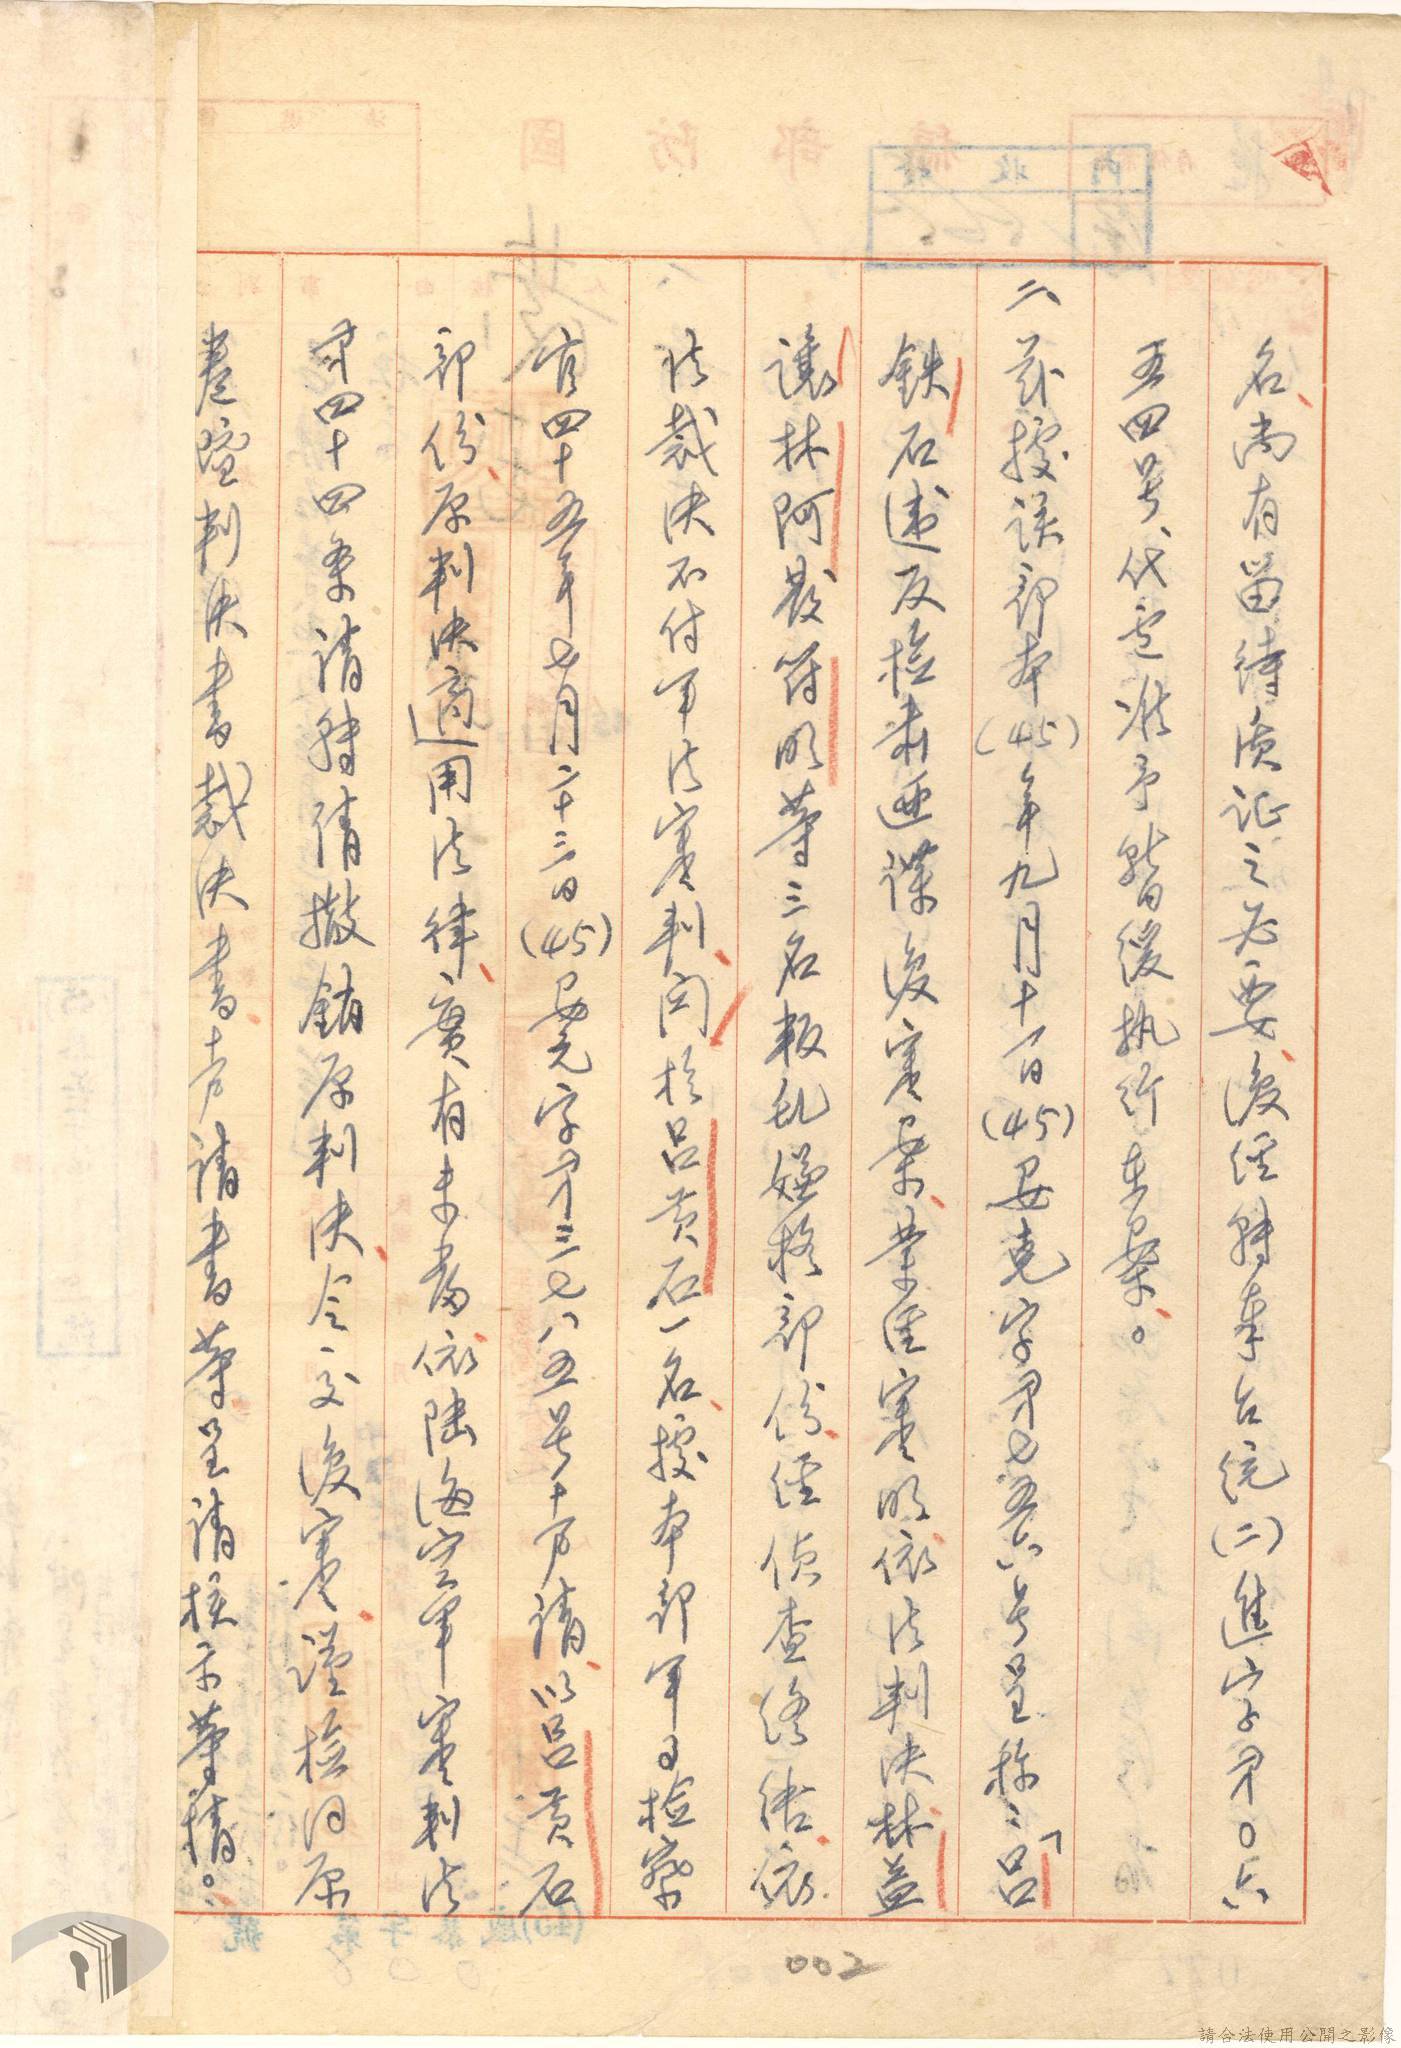 名尚有留待質証之必要、復經轉奉台統(二)進字第〇六
五四号、代電准予暫緩執行在案。
二、茲據該部本(45)年九月十一日(45)安克字第七五六号呈称：「呂
鉄石違反檢肅匪諜復審案、業經審明依法判決林益
謙林阿 符明等三名叛乱嫌 部份、經偵查終結、依
法裁決不付軍法審判、関於呂黄石一名、據本部軍事檢察
官四十五年七月二十三日(45)安元字第三七八五号声請、以呂黄石
部份、原判決適用法律、實有未當、依陸海空軍審判法
第四十四条請轉請撤銷原判決、令交復審、謹檢同原
卷證判決書裁決書、声請書等呈請核示等情。
002
請合法使用公開之影像